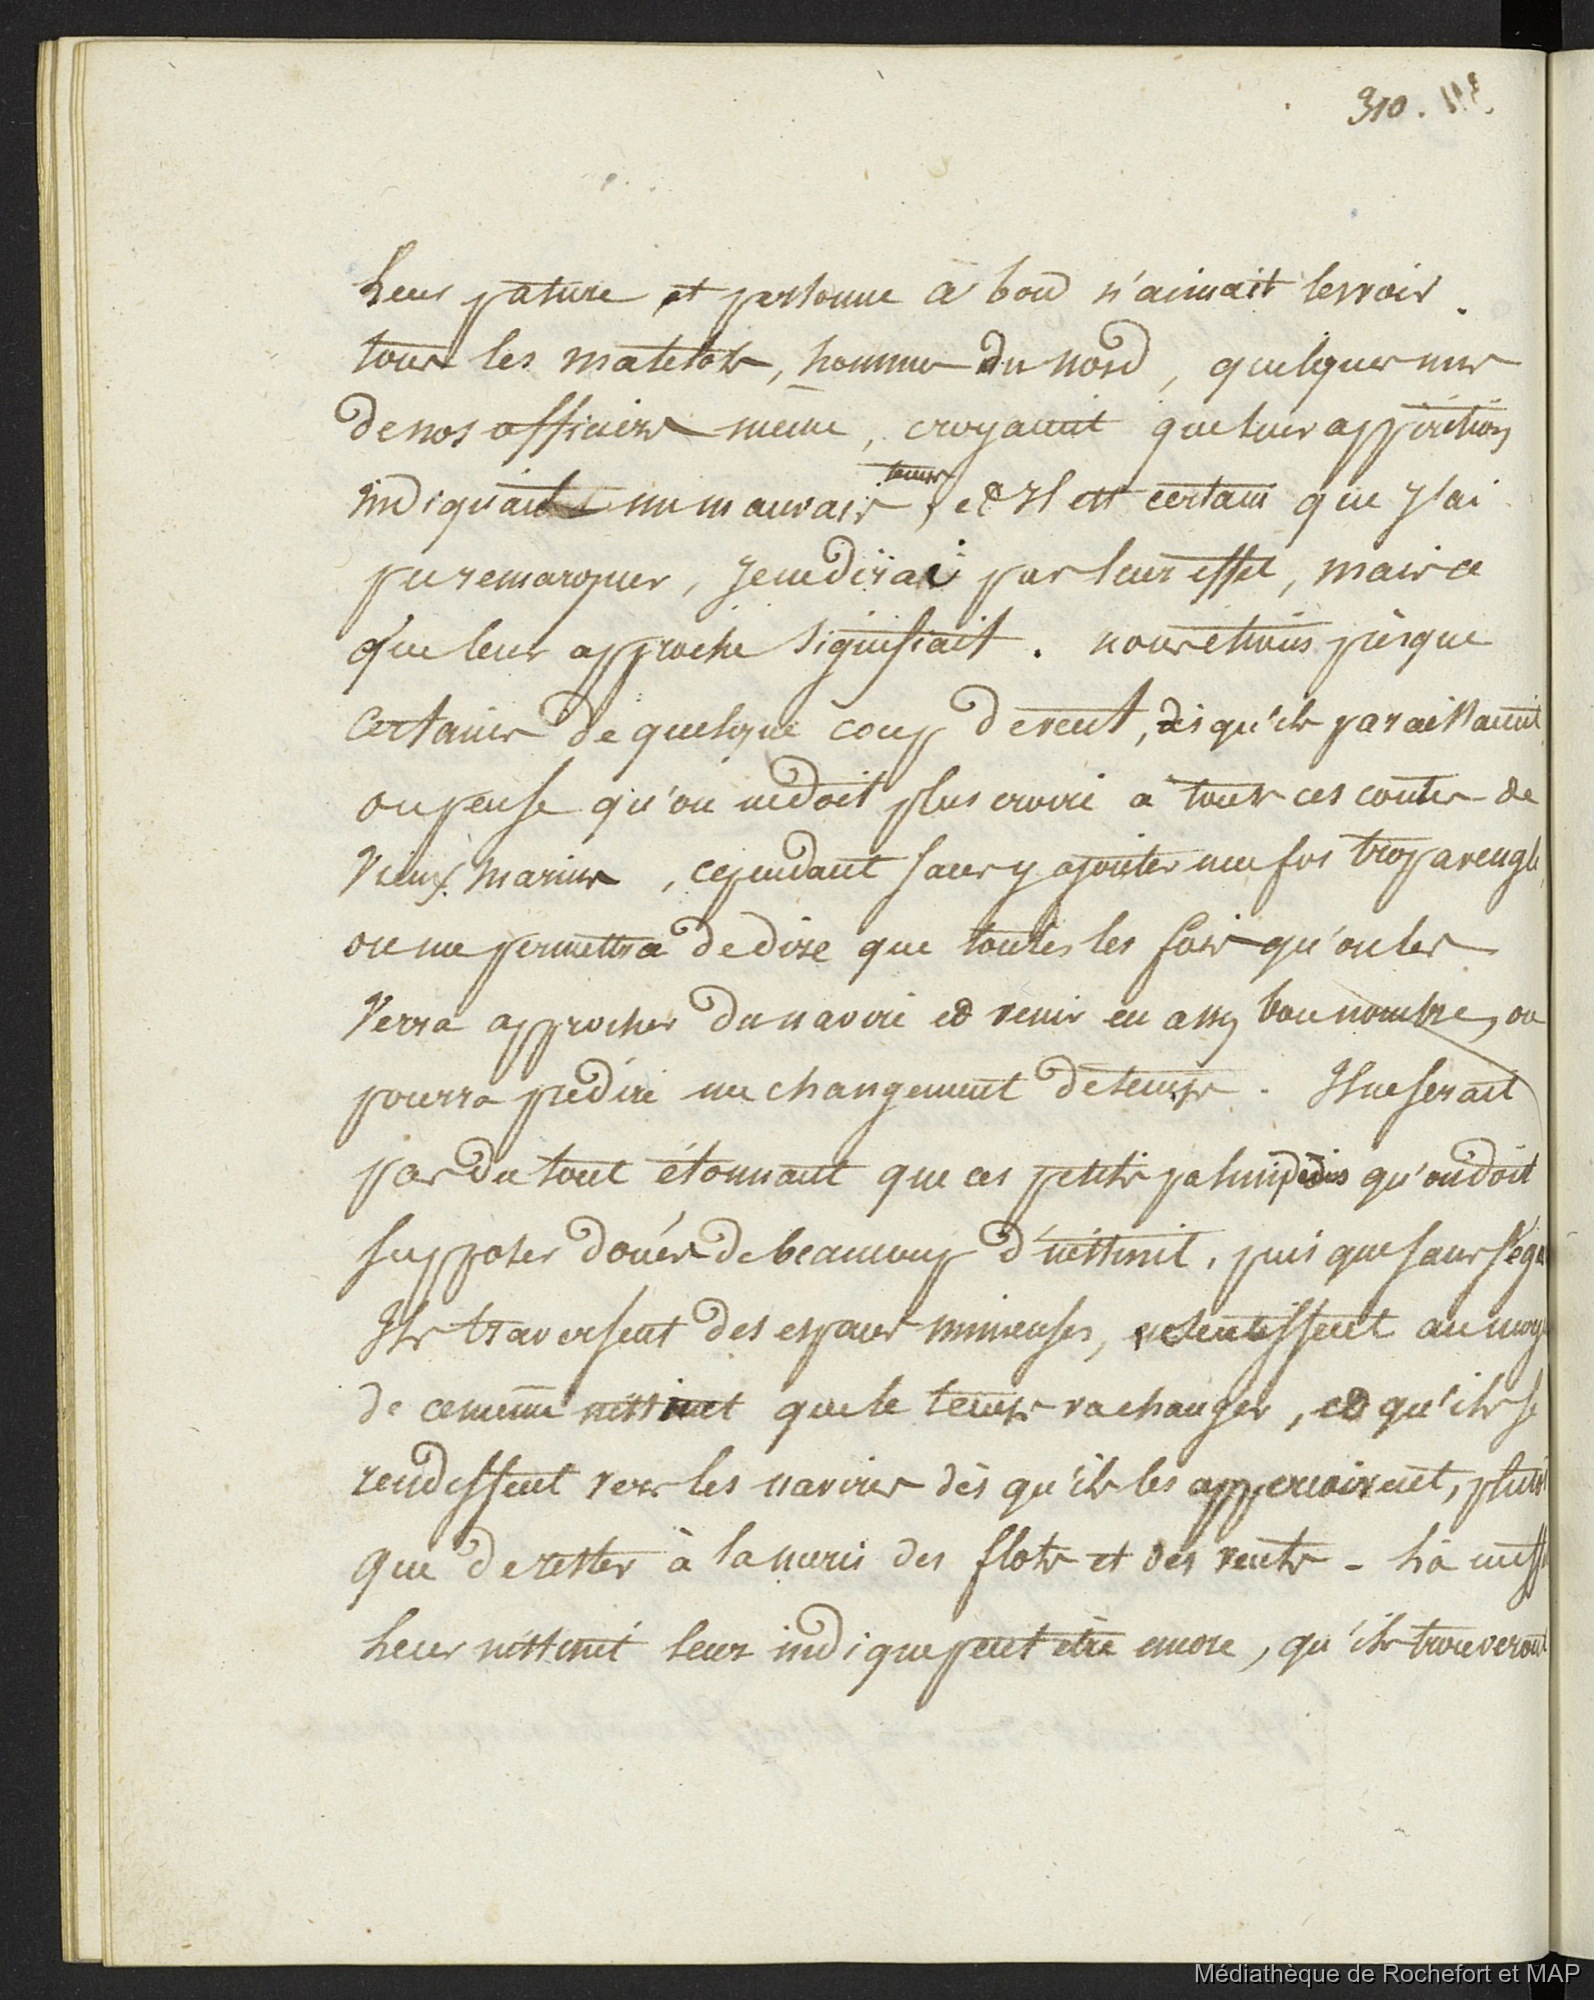 310.
Leur pature et personne à bord n'aimait les voir.
tous les matelots, hommes du nord, quelques uns
de nos officiers même, croyaient que leur apparition
indiquait un mauvais temps, et il est certain que j'ai
pu remarquer, je ne dirai pas leur effet, mais ce
que leur approche signifiait. nous étions presque
certains de quelque coup de vent, dès qu'ils paraissaient
on pense qu'on ne doit plus croire à tous ces contes de
vieux marins, cependant sans y ajouter une foi trop aveugle,
on me permettra de dire que toutes les fois qu'on les
verra approcher du navire et venir en assez bon nombre, on
pourra prédire un changement de temps. Il ne serait
pas du tout étonnant que ces petits palmipèdes qu'on doit
supposer doués de beaucoup d'instinct, puis que sans s'éga
Ils traversent des espaces immenses, sentissent au moye
de ce même instinct que le temps va changer, et qu'ils se
rendissent vers les navires dès qu'ils les apperçoivent, plutôt
que de rester à la merci des flots et des vents - Là
Leur instinct leur indique peut être encore, qu'ils trouveront
Médiathèque de Rochefort et MAP